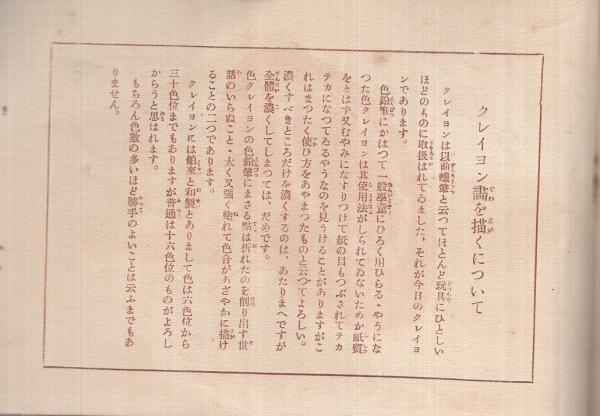 クレイヨン畵を描くについて
クレイヨンは以前蠟筆と云つてほとんど玩具にひとしい
ほどのものに取扱はれてゐました、それが今日のクレイヨ
ンであります。
色鉛筆にかはつて一般學童にひろく用ひらるゝやうにな
つた色クレイヨンは其使用法がしられてゐないためか紙質
をとはず又むやみになすりつけて紙の目もつぶされてテカ
テカになつてゐるやうなのを見うけることがありますがこ
れはまつたく使ひ方をあやまつたものと云つてよろしい。
濃くすべきところだけを濃くするのは、あたりまへですが
全體を濃くしてしまつては、だめです。
色クレイヨンの色鉛筆にまさる點は折れたのを削り出す世
話のいらぬこと・太く又强く塗れて色合があざやかに描け
ることの二つであります。
クレイヨンには舶來と和製とありまして色は六色位から
三十色位までもありますが普通は十六色位のものがよろし
からうと思はれます。
もちろん色數の多いほど勝手のよいことは云ふまでもあ
りません。